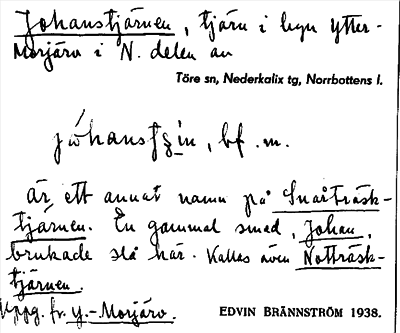 Johanstjärnen, tjärn i byn Ytter-
Morjärv i N. delen av
Töre sn, Nederkalix tg, Norrbottens l.
bf. m.
är ett annat namn på Snårträsk-
tjärnen. En gammal smed, Johan,
brukade slå här. Kallas även Notträsk-
tjärnen.
Uppg. fr. Y.-Morjärv.
EDVIN BRÄNNSTRÖM 1938.